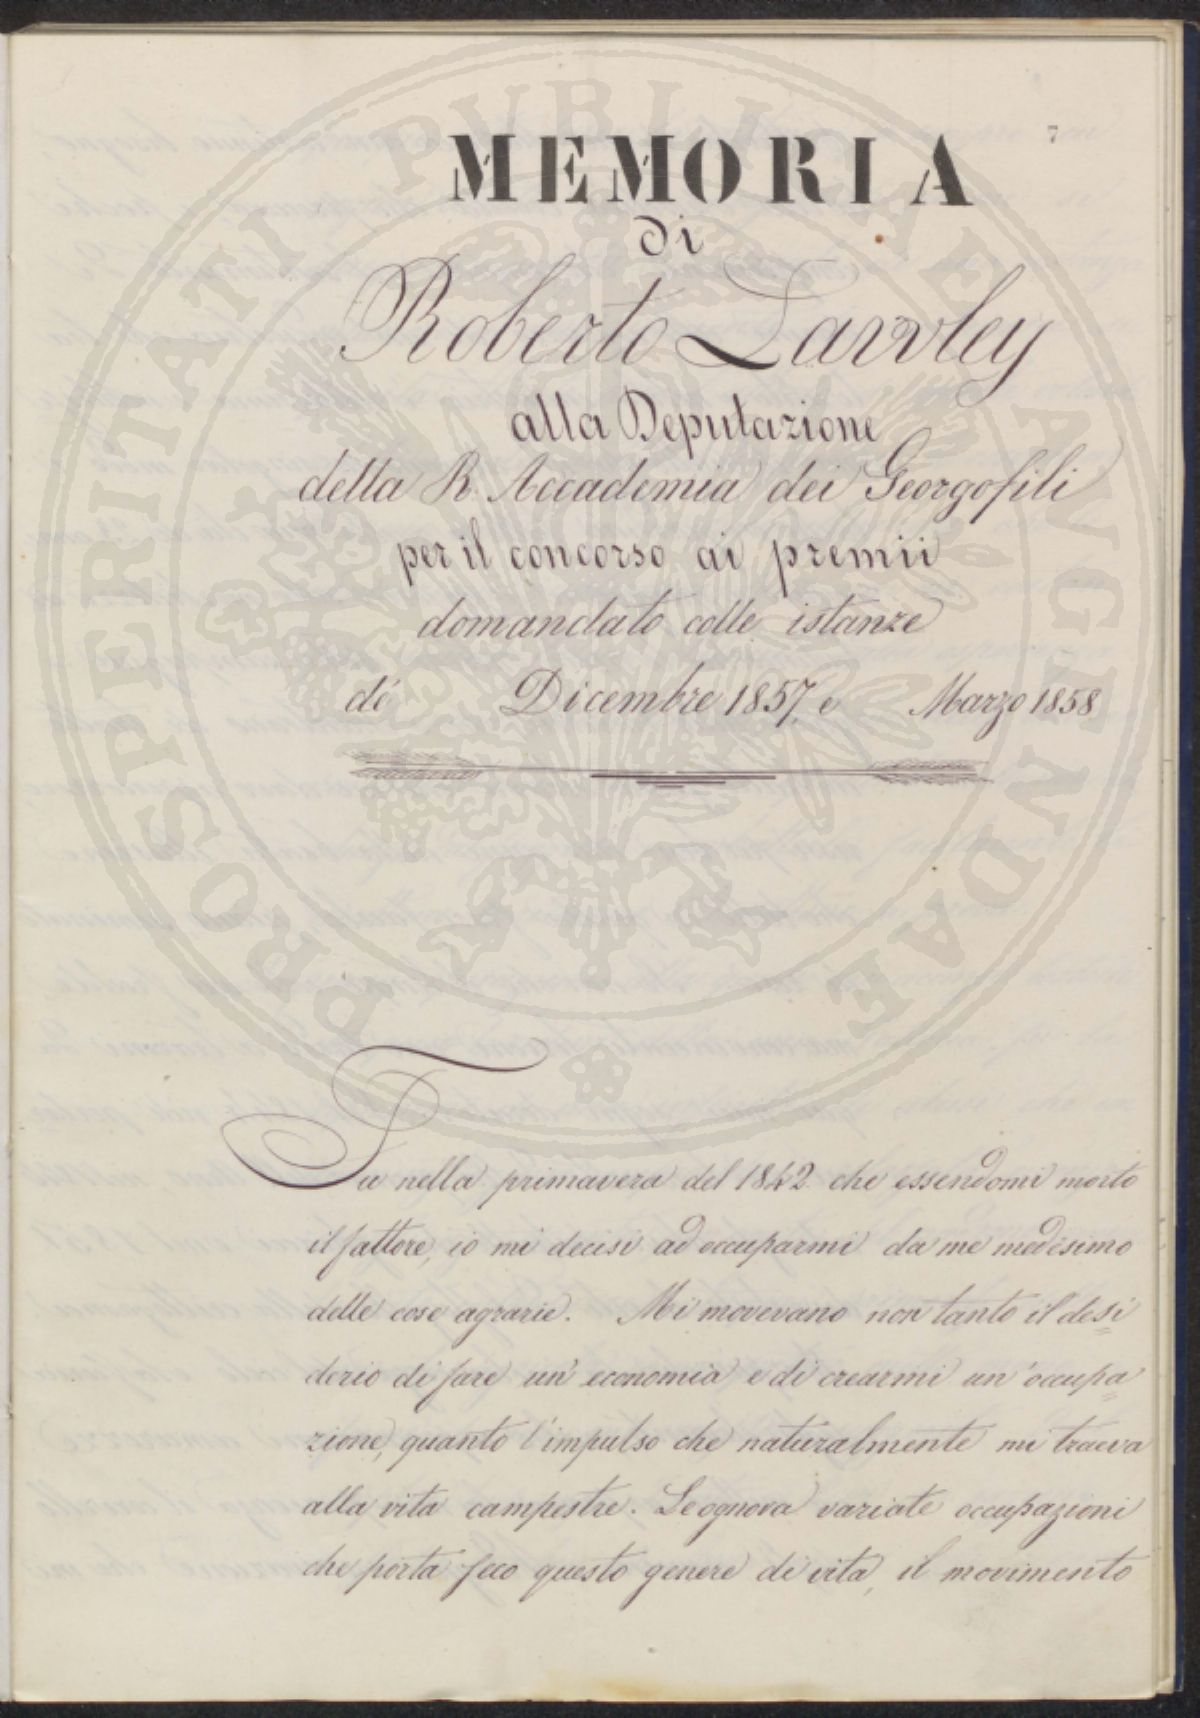 7
MEMORIA
di
Roberto Lawley
alla Deputazione
della R. Accademia dei Georgofili
per il concorso ai premii
domandato colle istanze
de' Dicembre 1857, e Marzo 1858
Fu nella primavera del 1842 che essendomi morto
il fattore, io mi decisi ad occuparmi da me medesimo
delle cose agrarie. Mi movevano non tanto il desi=
derio di fare un' economia e di crearmi un' occupa=
zione, quanto l'impulso che naturalmente mi traeva
alla vita campestre. Le ognora variate occupazioni
che porta seco questo genere di vita, il movimento
PROSPERITATI PUBLICAE AVGENDAE